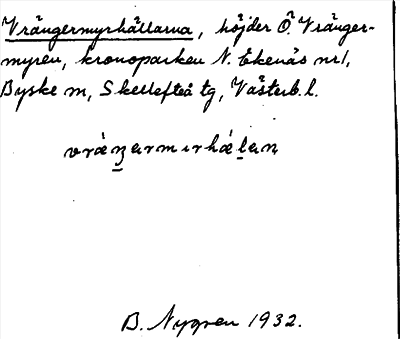 Vrängermyrhällarna, höjder Ö. Vränger-
myren, kronoparken N. Ekenäs nr 1,
Byske sn, Skellefteå tg, Västerb. l.
vrä́ŋarmyrhä́lan
B. Nygren 1932.